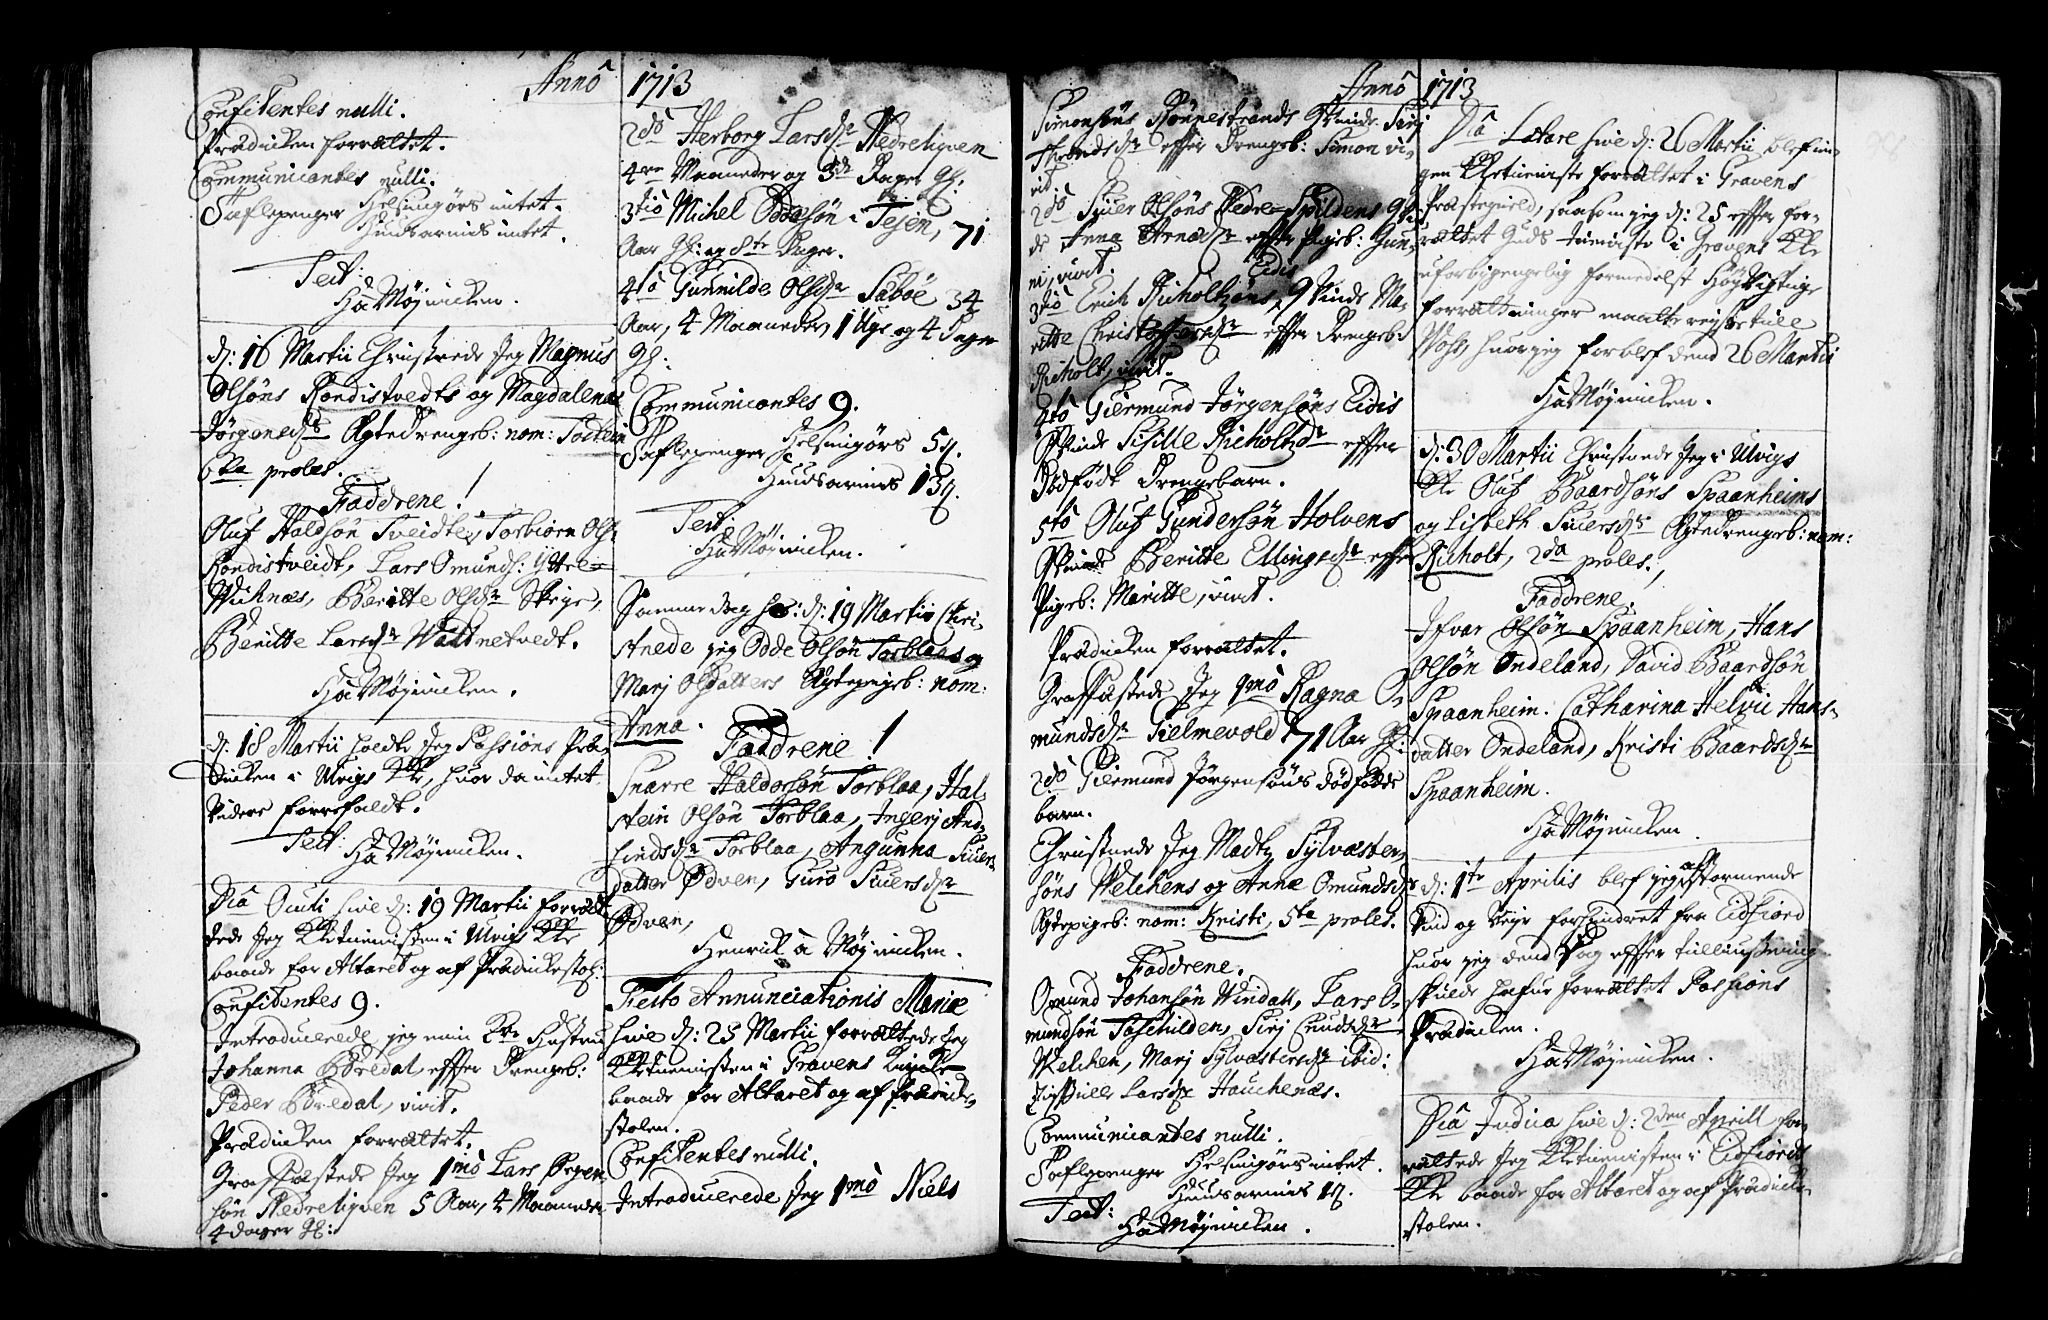 Annô 1713
Confitentes nulli.
Prædicken forrættet.
Communicantes nulli.
Taflepenger Helsingørs intet.
Huusarmis intet.
Test:
Hà Møjnicken.
d: 16 Martii Christnede Jeg Magnus
Olsøns Rondistvedts og Magdalenæ
Jørgensdrs Ægtedrengeb: nom: Tostein
6ta proles.
Faddrene!
Oluf Haldsøn Tveidte, Torbiörn Ols:
Rondistveidt, Lars Omunds: Yttre-
Wichnæs, Beritte Olsdr Skeje,
Beritte Larsdr Wattnetvedt.
Hà Møjnicken.
d: 18 Martii holdte Jeg Passions Præ-
dicken i Ulvigs Kke, huor da intet
videre forrefaldt.
Test: Hà Møjnicken.
Diâ Oculi sive d: 19 Martii forræt-
tede Jeg Kketienisten i Ulvigs Kke
baade for Altaret og af Prædickestol:
Confitentes 9.
Introducerede jeg min Hustru
Johanna Bredal, effter Drengeb:
Peder Bredal, vivit.
Prædicken forrættet.
Graffæstede Jeg 1mò Lars
søn Nedreliqven 5 Aar, 4 Maaneder
4 dager gl:
2dò Herborg Larsdr Nedreliqven
4re Maaneder og 3de Dager gl:
3tiò Michel Oddesøn i Tesen, 71
Aar gl: og 8te Dager.
4tò Gunnilde Olsdr Sæbøe 34
Aar, 4 Maaneder, 1 Uge og 4 Dager
gl.
Communicantes 9.
Taflepenger Helsingørs 5 s.
Huusarmis 13 s.
Test:
Hà Møjnicken.
Samme dag d: 19 Martii Chri-
stnede jeg Odde Olsøn Torblaas og
Marj Olsdatters Ægtepigeb: nom:
Anna.
Faddrene!
Snarre Haldorsøn Torblaa, Hal-
stein Olsøn Torblaa, Ingerj And-
findsdr Torblaa, Angunna Siuer-
datter Ødven, Guro Siuersdr
Ødven,
Henrich à Møjnicken.
Festo Annunciationis Mariæ
sive d: 25 Martii forrættede Jeg
Kketienisten i Gravens Kircke
baade for Altaret og af Prædicke-
stolen.
Confitentes nulli.
Introducerede Jeg 1mò Niels
Annô 1713
Simonsøns Rønnestrands Qvinde Sirj
Throndsdr effter Drengeb: Simon vi-
vit.
2dò Siuer Olsøns Nedre-Spildens Qvin-
de Anna Arnesdr effter Pigeb: Gun-
ni, vivit.
3tiò Erich Richoltsøns Eidis Qvinde Ma-
ritte Christoffersdr effter Drengeb:
Richolt, vivit.
4tò Giermund Jørgensøns Eidis
Qvinde Sisille Richoltzdr effter
Dødfødt Drengebarn.
5tò Oluf Gundersøn Holvens
Qvinde Beritte Ellingsdr effter
Pigeb: Maritte, vivit.
Prædicken forrættet.
Graffæstede Jeg 1mò Ragna O-
mundsdr Gielmevold 71 Aar gl:
2dò Giermund Jørgensøns dødfødde
barn.
Christnede Jeg Madtz Sylvester-
søns Velchens og Annæ Omundsdrs
Ægtepigeb: nom: Kristi, 5ta proles.
Faddrene.
Omund Johansøn Windall, Lars O-
mundsøn Toschilden, Sirj Cnudsdr
Welchen, Marj Sylvestersdr ibid:
Larsdr Hauchenæs.
Communicantes nulli.
Taflepenger Helsingørs intet.
Huusarmis 1 s.
Test:
Hà Møjnicken.
Diâ Lætare sive d: 26 Martii blef in-
gen Kketieniste forrættet i Gravens
Præstegield, saasom jeg d: 25 effter for-
rættet Guds tieniste i Gravens Kke
uforbigengelig formedelst Høyvigtige
forrætninger maatte reyse till
Woss, huor jeg forblef dend 26 Martii
Hà Møjnicken.
d: 30 Martii Christnede Jeg i Ulvigs
Kke Oluf Baardsøns Spaanheims
og Lisbeth Siuersdrs Ægtedrengeb: nom:
Richolt, 2da proles.
Faddrene!
Ifvar Olsøn Spaanheim, Hans
Olsøn Undeland, David Baardsøn
Spaanheim. Catharina Helvic Hans-
datter Undeland, Kristi Baardsdr
Spaanheim.
Hà Møjnicken.
d: 1te Aprilis blef jeg aff stormende
vind og veyr forhindret fra Eidfiord
huor jeg dend Dag effter tillussning
skulde hafue forrættet Passions
Prædicken.
Hà Møjnicken.
Diâ Judica sive d: 2den Aprill for-
rættede Jeg Kketienisten i Eidfiords
Kke baade for Altaret og af Prædicke-
stolen.